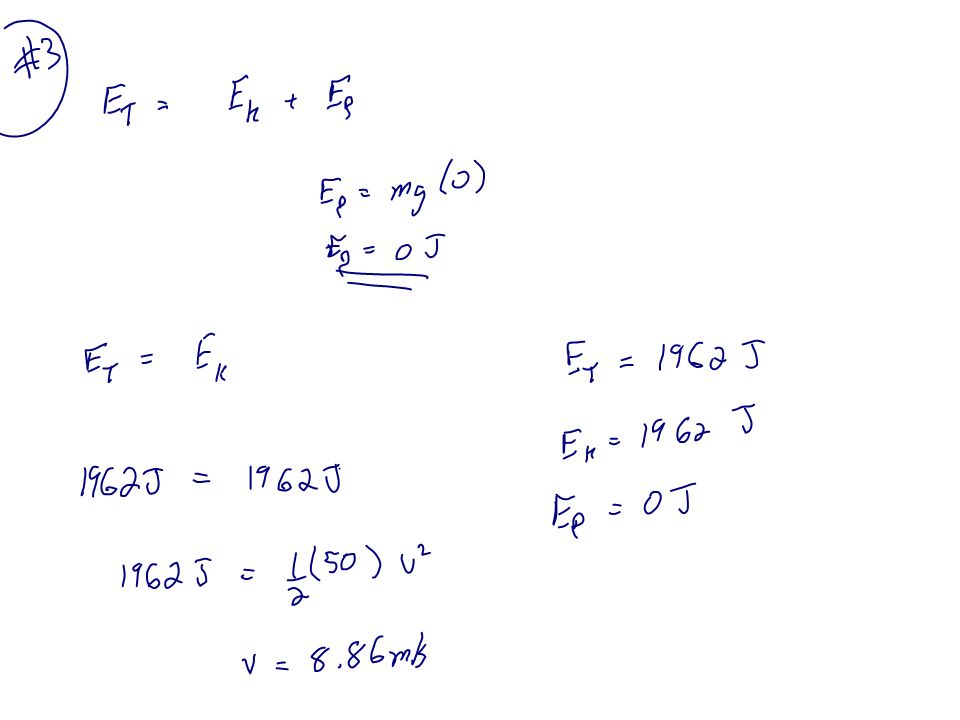 #3
E_T = E_k + E_p
E_p = mg(0)
E_p = 0 J
E_T = E_k
1962J = 1962J
1962 J = 1/2 (50) v²
v = 8.86 m/s
E_T = 1962 J
E_k = 1962 J
E_p = 0 J